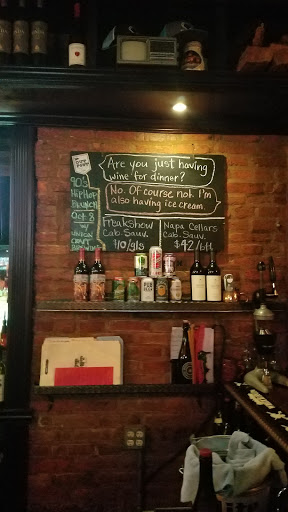 90s
HipHop
Brunch
Oct 8
w/
UNION
CRAFT
BREWING
Are you just having
wine for dinner?
No. Of course not. I'm
also having ice cream.
Freakshow
Cab. Sauv.
Napa Cellars
Cab. Sauv.
$42/btl